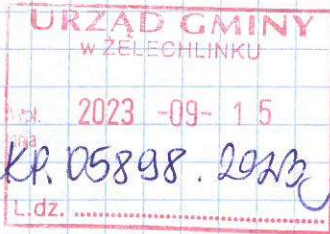 URZĄD GMINY
W ŻELECHLINKU
2023 -09- 15
KP. 05898. 2023
L.dz. ........................